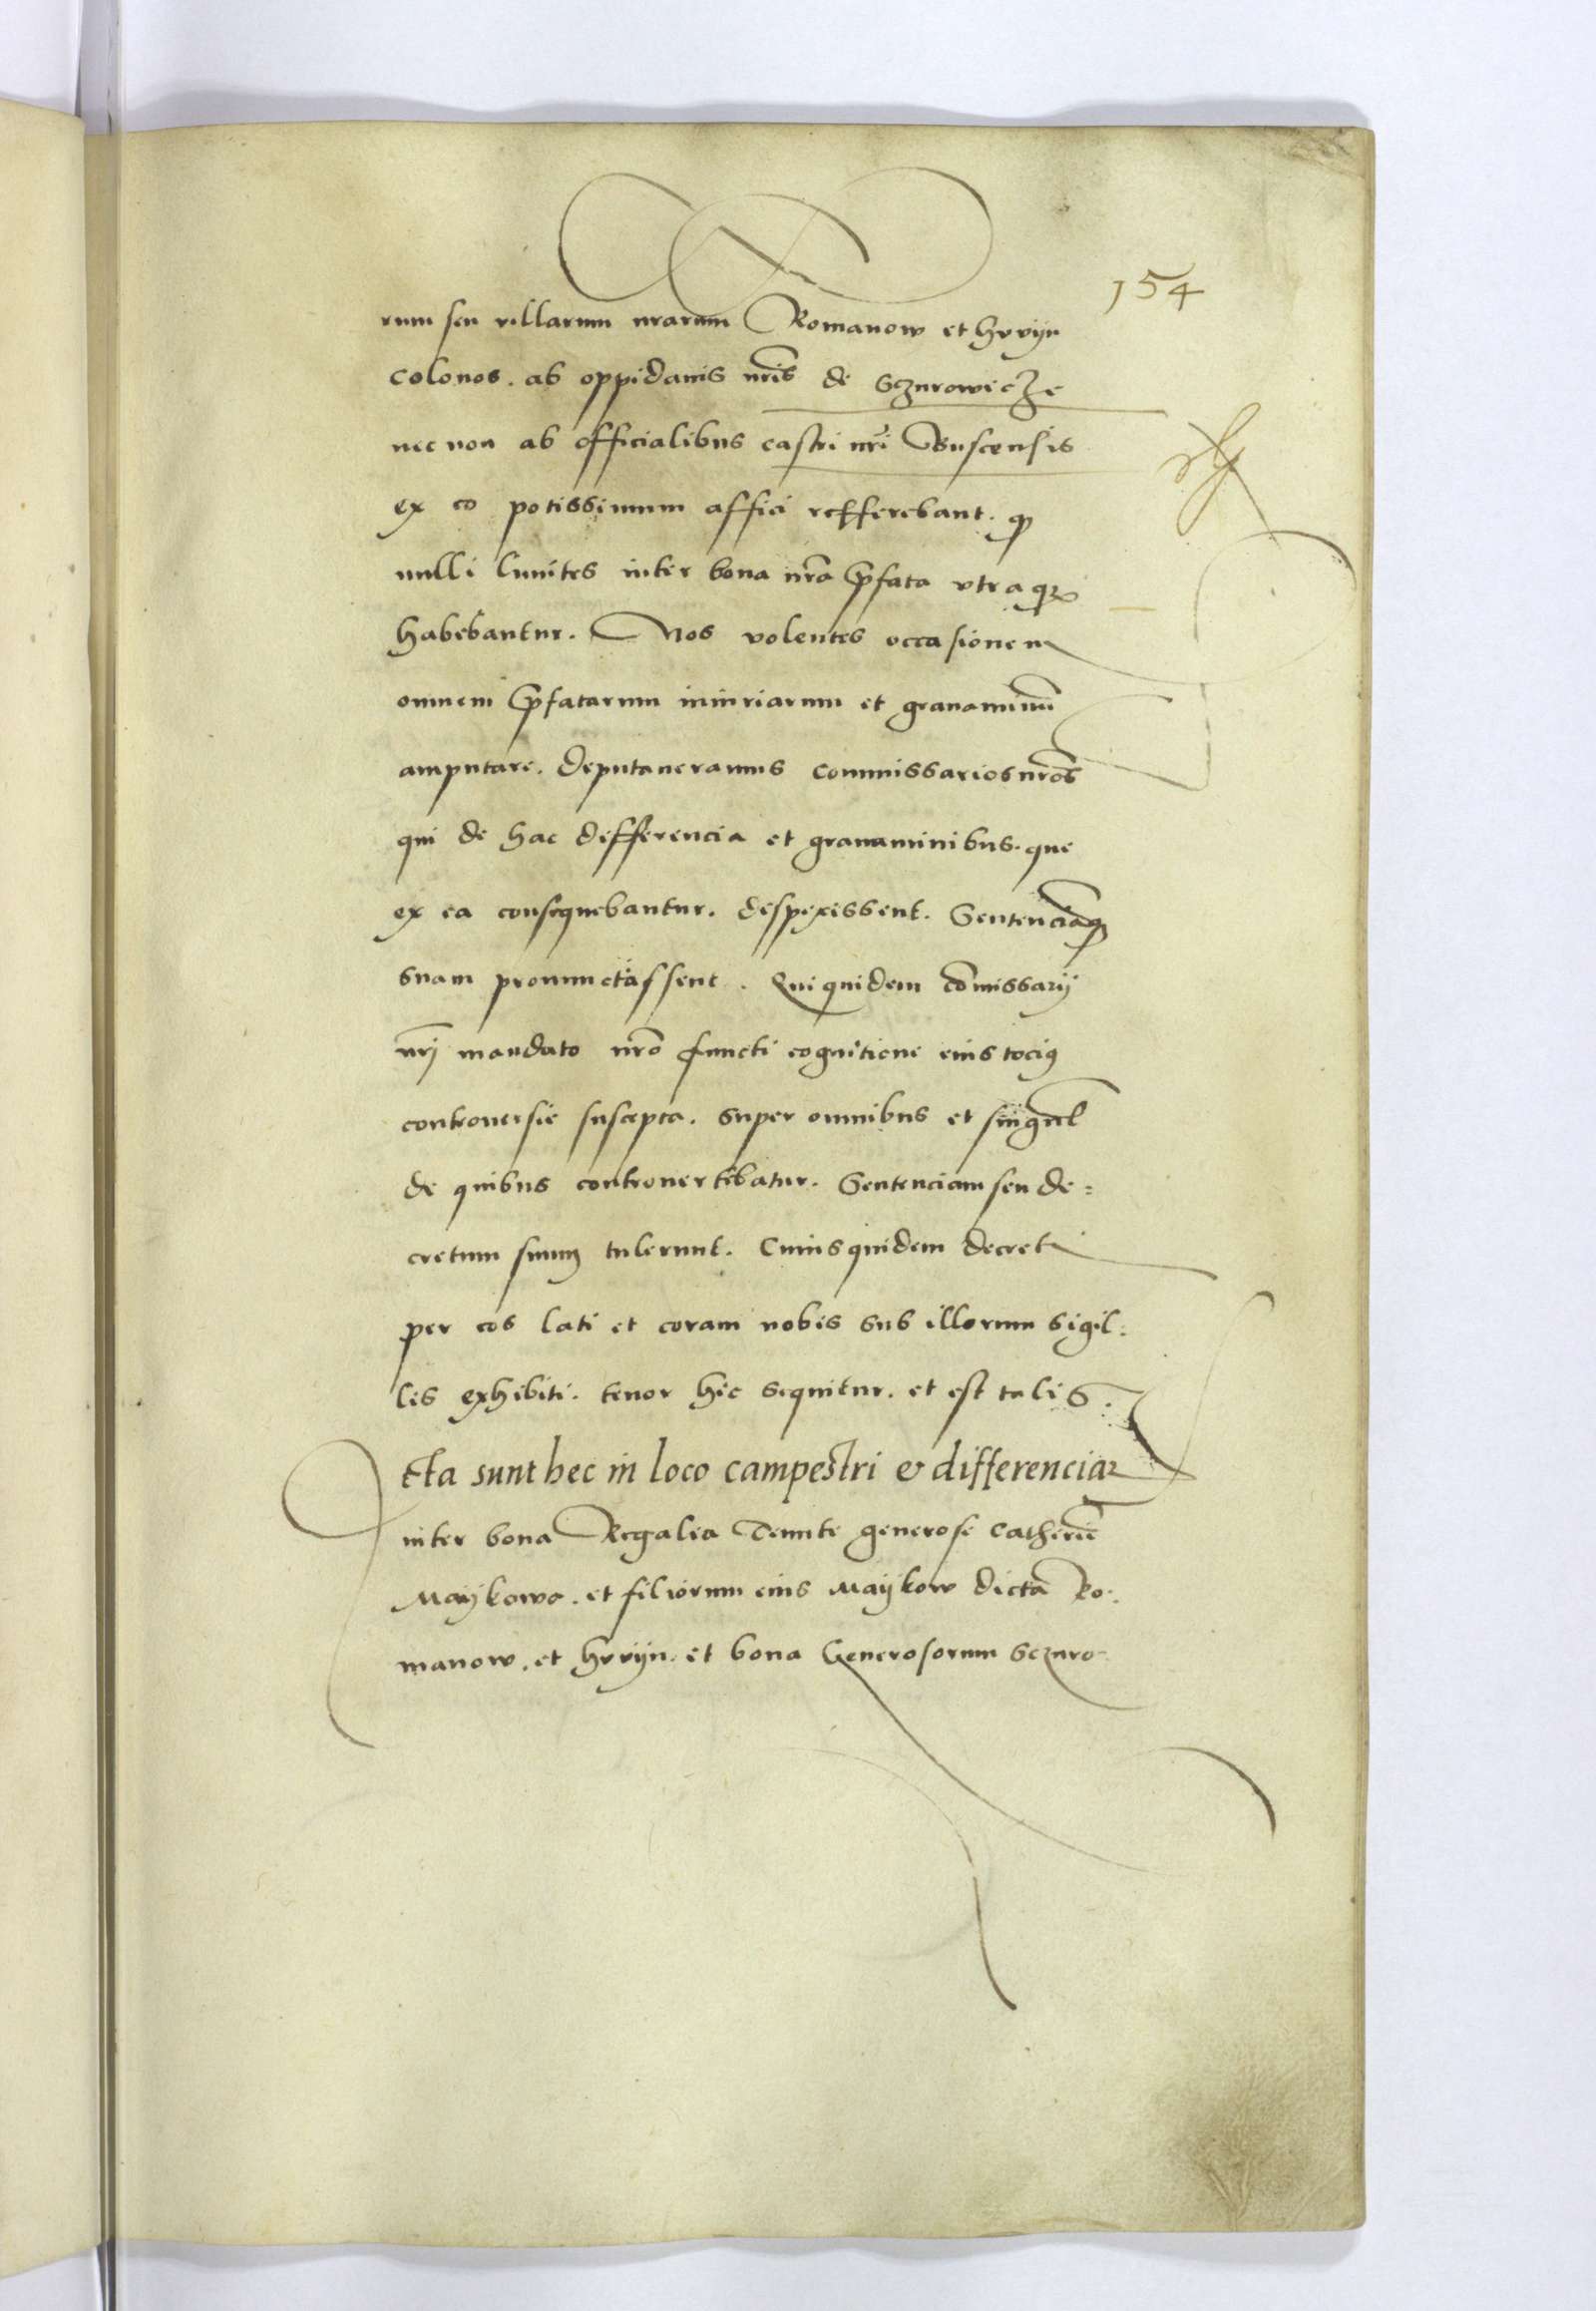 154
rum seu villarum nrarum Romanow et hrvyn
colonos. ab oppidanis nris de Sczurowicze
nec non ab officialibus castri nri Buscensis
ex eo potissimum affici refferebant. qȝ
nulli limites inter bona nra p̄fata vtraqȝ
habebantur. Nos volentes occasionem
omnem p̄fatarum iniuriarum et grauaminū
amputare. deputaueramus commissarios nros
qui de hac differencia et grauaminibus. que
ex ea consequebantur. despexissent. Sentenciāqȝ
suam pronunctiassent. Qui quidem cōmissarij
nrj mandato nro functi cognitione eius tociꝰ
controuersie suscepta. super omnibus et singul
de quibus controuertebatur. Sentenciam seu de=
cretum suum tulerunt. Cuius quidem decreti
per eos lati et coram nobis sub illorum sigil:
lis exhibiti. tenor hic sequitur. et est talis.
Acta sunt hec in loco campestri & differenciaꝝ
inter bona Regalia Tenute generose Catherīe
Maykowa. et filiorum eius Maykow dicta Ro:
manow. et hrvyn. et bona Generosorum Sczuro